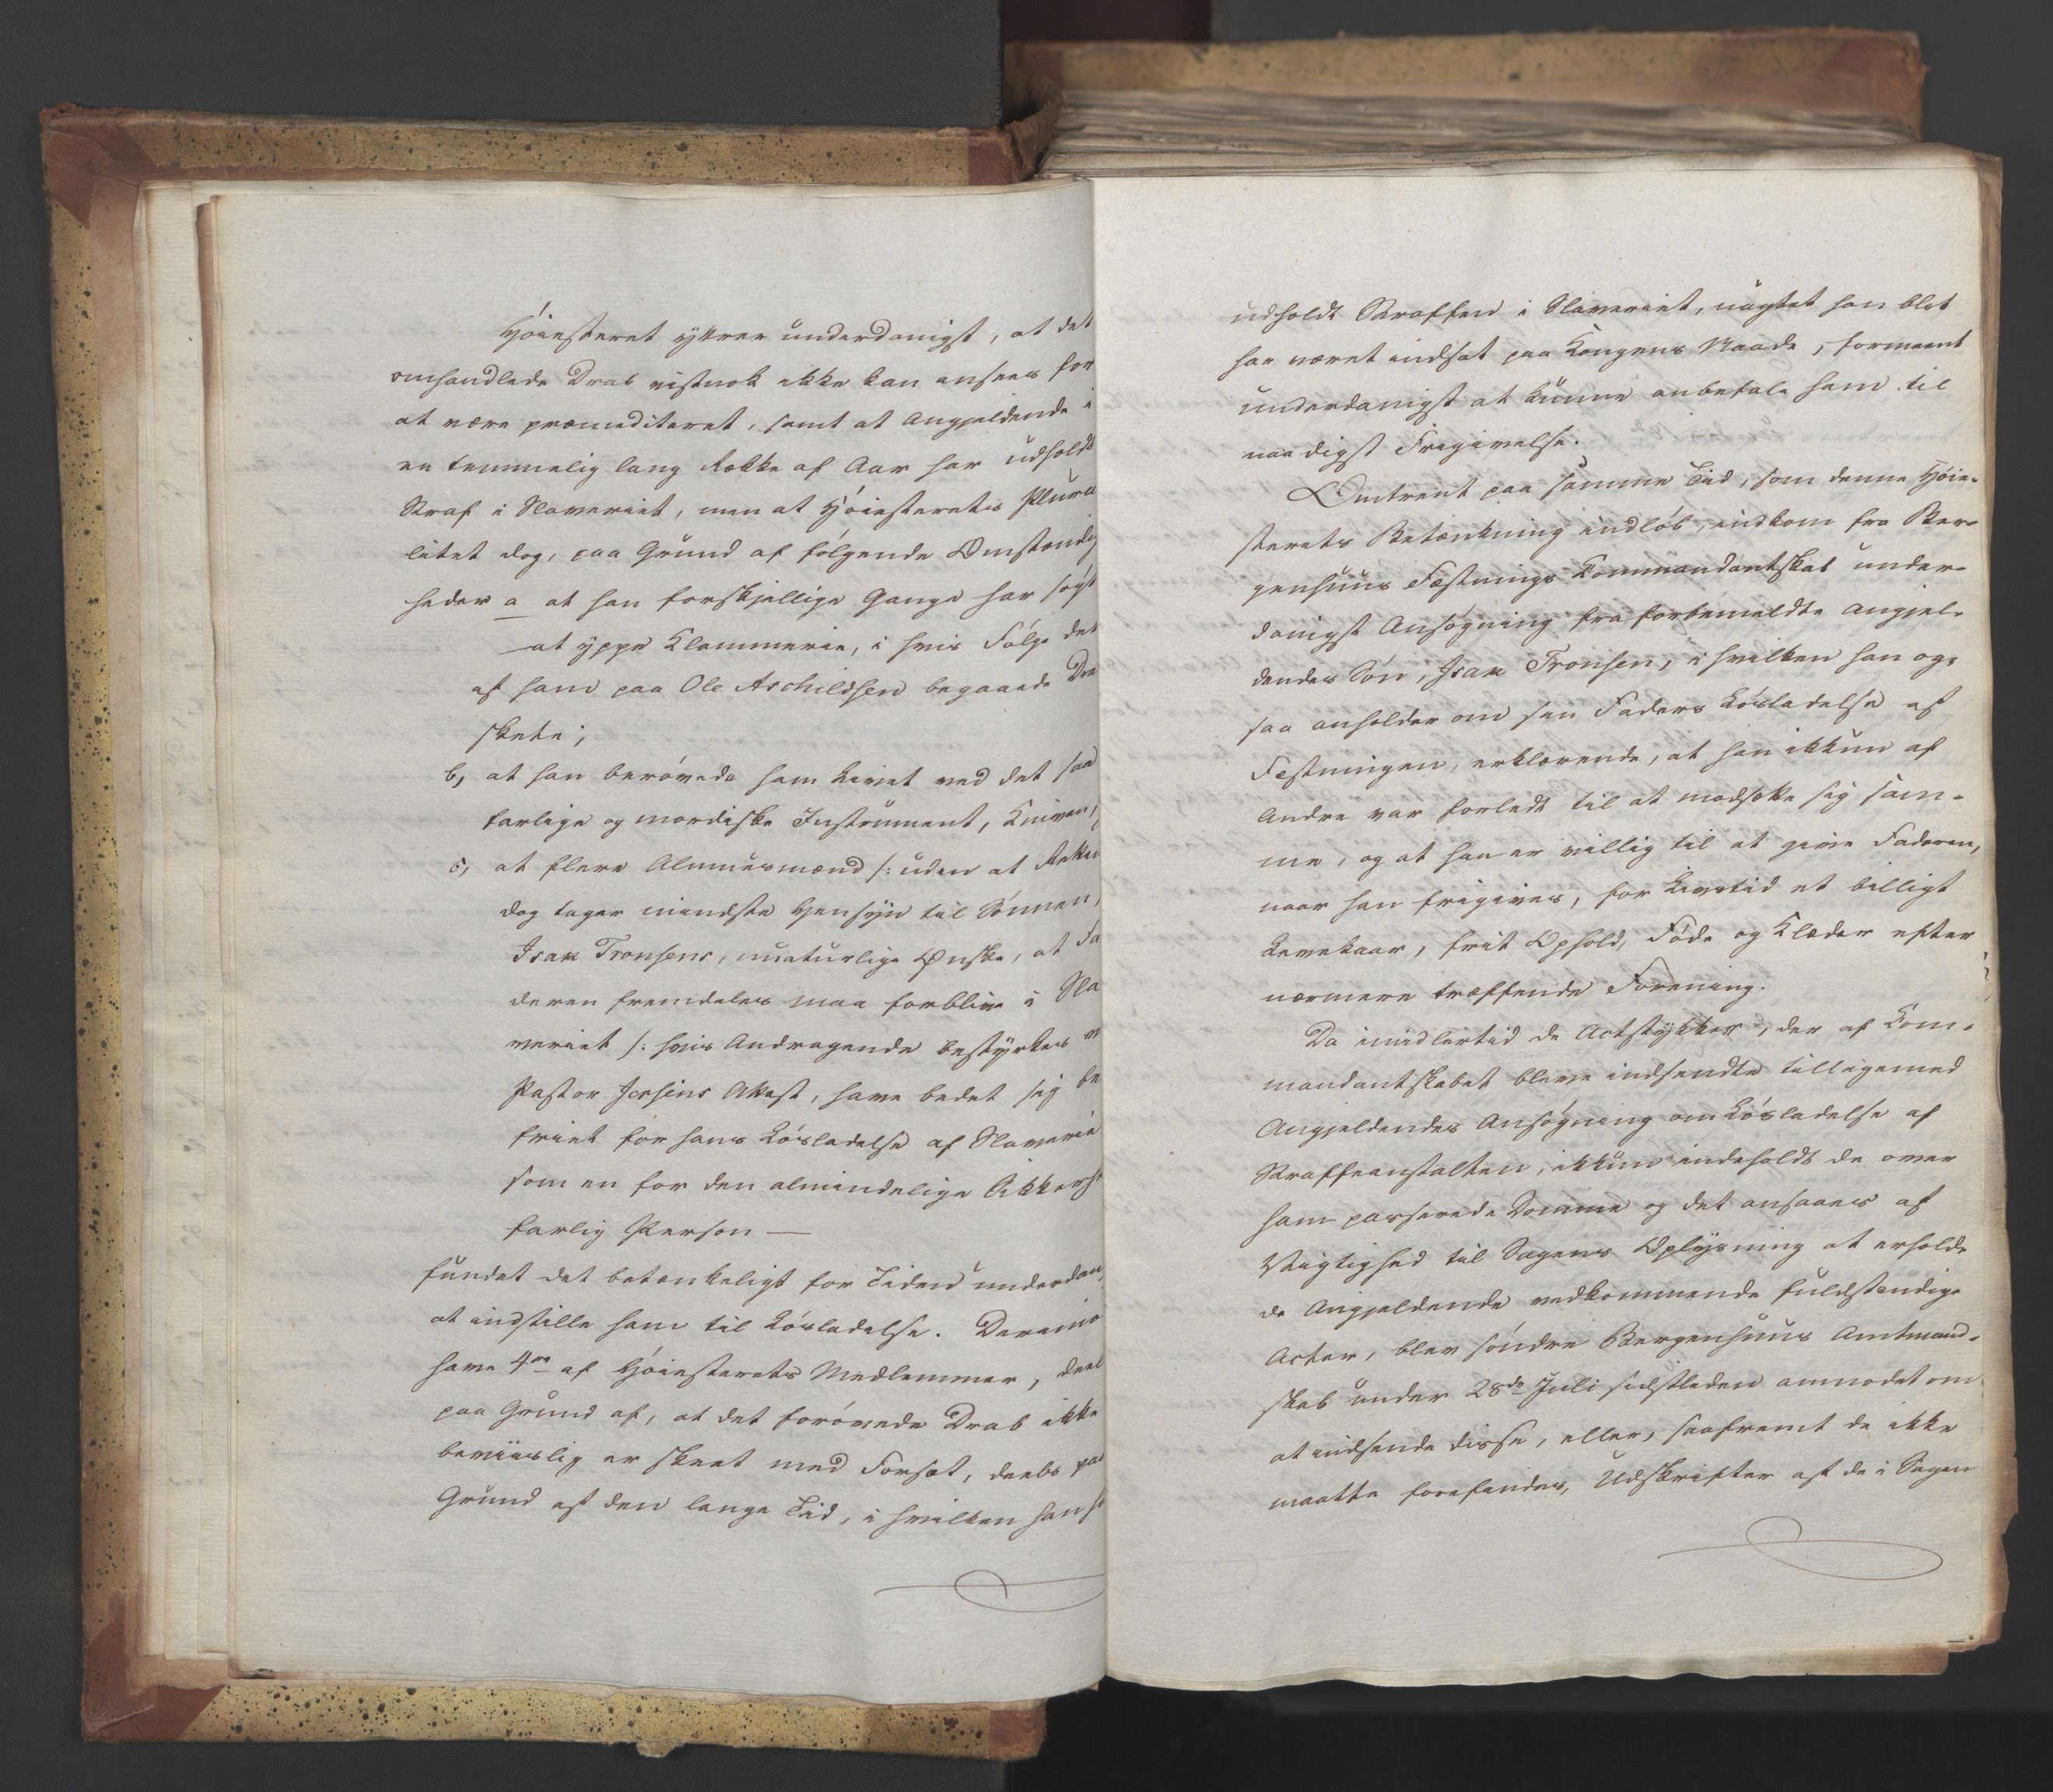 Høiesteret yttrer underdanigst, at det
omhandlede Drab vistnok ikke kan ansees for
at være præmediteret, samt at Angjeldende i
en temmelig lang Række af Aar har udholdt
Straf i Slaveriet, men at Høiesterets Plura
litet dog, paa Grund af følgende Omstændig
heder a at han forskjellige Gange har søgt
at yppe Klammerie, i hvis Følge det
af ham paa Ole Aschildsen begaaede Dra
skete;
b, at han berøvede ham Livet ved det saa
farlige og mordiske Instrument, Kniven,
c, at flere Almuesmænd /: uden at Retten
dog tager mindste Hensyn til Sønnen,
Isak Tronsens, unaturlige Ønske, at Fa
deren fremdeles maa forblive i Sla
veriet /: hvis Andragende bestyrkes
Pastor Attest, have bedet sig be
friet for hans Løsladelse af Slaverie
som en for den almindelige Sikkerh
farlig Person —
fundet det betænkeligt for Tiden underdan,
at indstille ham til Løsladelse. Derimo
have 4re af Høiesterets Medlemmer, deel
paa Grund af, at det forøvede Drab ikke
beviislig er skeet med Forsæt, deels paa
Grund af den lange Tid, i hvilken han h
udholdt Straffen i Slaveriet, uagtet han blot
har været indsat paa Kongens Naade, formeent
underdanigst at kunne anbefale ham til
naadigst Frigivelse.
Omtrent paa samme Tid, som denne Høie-
sterets Betænkning indløb, indkom fra Ber-
genhuus Fæstnings Kommandantskab under-
danigst Ansøgning fra forbemeldte Angjel-
dendes Søn, Isak Tronsen, i hvilken han og-
saa anholder om sin Faders Løsladelse af
Fæstningen, erklærende, at han ikkun af
Andre var forledt til at modsætte sig sam-
me, og at han er villig til at give Faderen,
naar han frigives, for Livstid et billigt
Levekaar, frit Ophold, Føde og Klæder efter
nærmere træffende Forening.
Da imidlertid de Actstykker, der af Kom-
mandantskabet bleve indsendte tilligemed
Angjeldendes Ansøgning om Løsladelse af
Straffeanstalten, ikkun indeholdt de over
ham passerede Domme og det ansaaes af
Vigtighed til Sagens Oplysning at erholde
de Angjeldende vedkommende fuldstændige
Acter, blev søndre Bergenhuus Amtmand-
skab under 28de Juli sidstleden anmodet om
at indsende disse, eller, saafremt de ikke
maatte forefindes, Udskrifter af de i Sagen